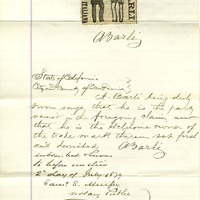 BARLI
A Barli
State of California
City & County of San Francisco
A. Barli being duly
sworn says that he is the party
named in the foregoing claim and
that he is the exclusive owner of
the trade mark therein set forth
and described
A Barli
Subscribed & sworn
to before me this
2nd day of July 1879
Saml S. Murfey
Notary Public